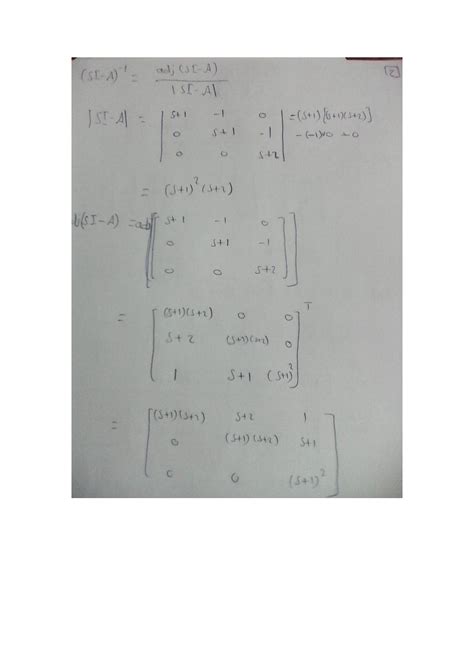 (SI-A)⁻¹ = adj (SI-A) / |SI-A|
[2]
|SI-A| = | S+1 -1 0 | = (S+1) [(S+1)(S+2)]
| 0 S+1 -1 | - (-1)0 + 0
| 0 0 S+2 |
= (S+1)² (S+2)
(SI-A) = adj [ S+1 -1 0
0 S+1 -1
0 0 S+2 ]
= [ (S+1)(S+2) 0 0 ]ᵀ
S+2 (S+1)(S+2) 0
1 S+1 (S+1)²
= [ (S+1)(S+2) S+2 1
0 (S+1)(S+2) S+1
0 0 (S+1)² ]